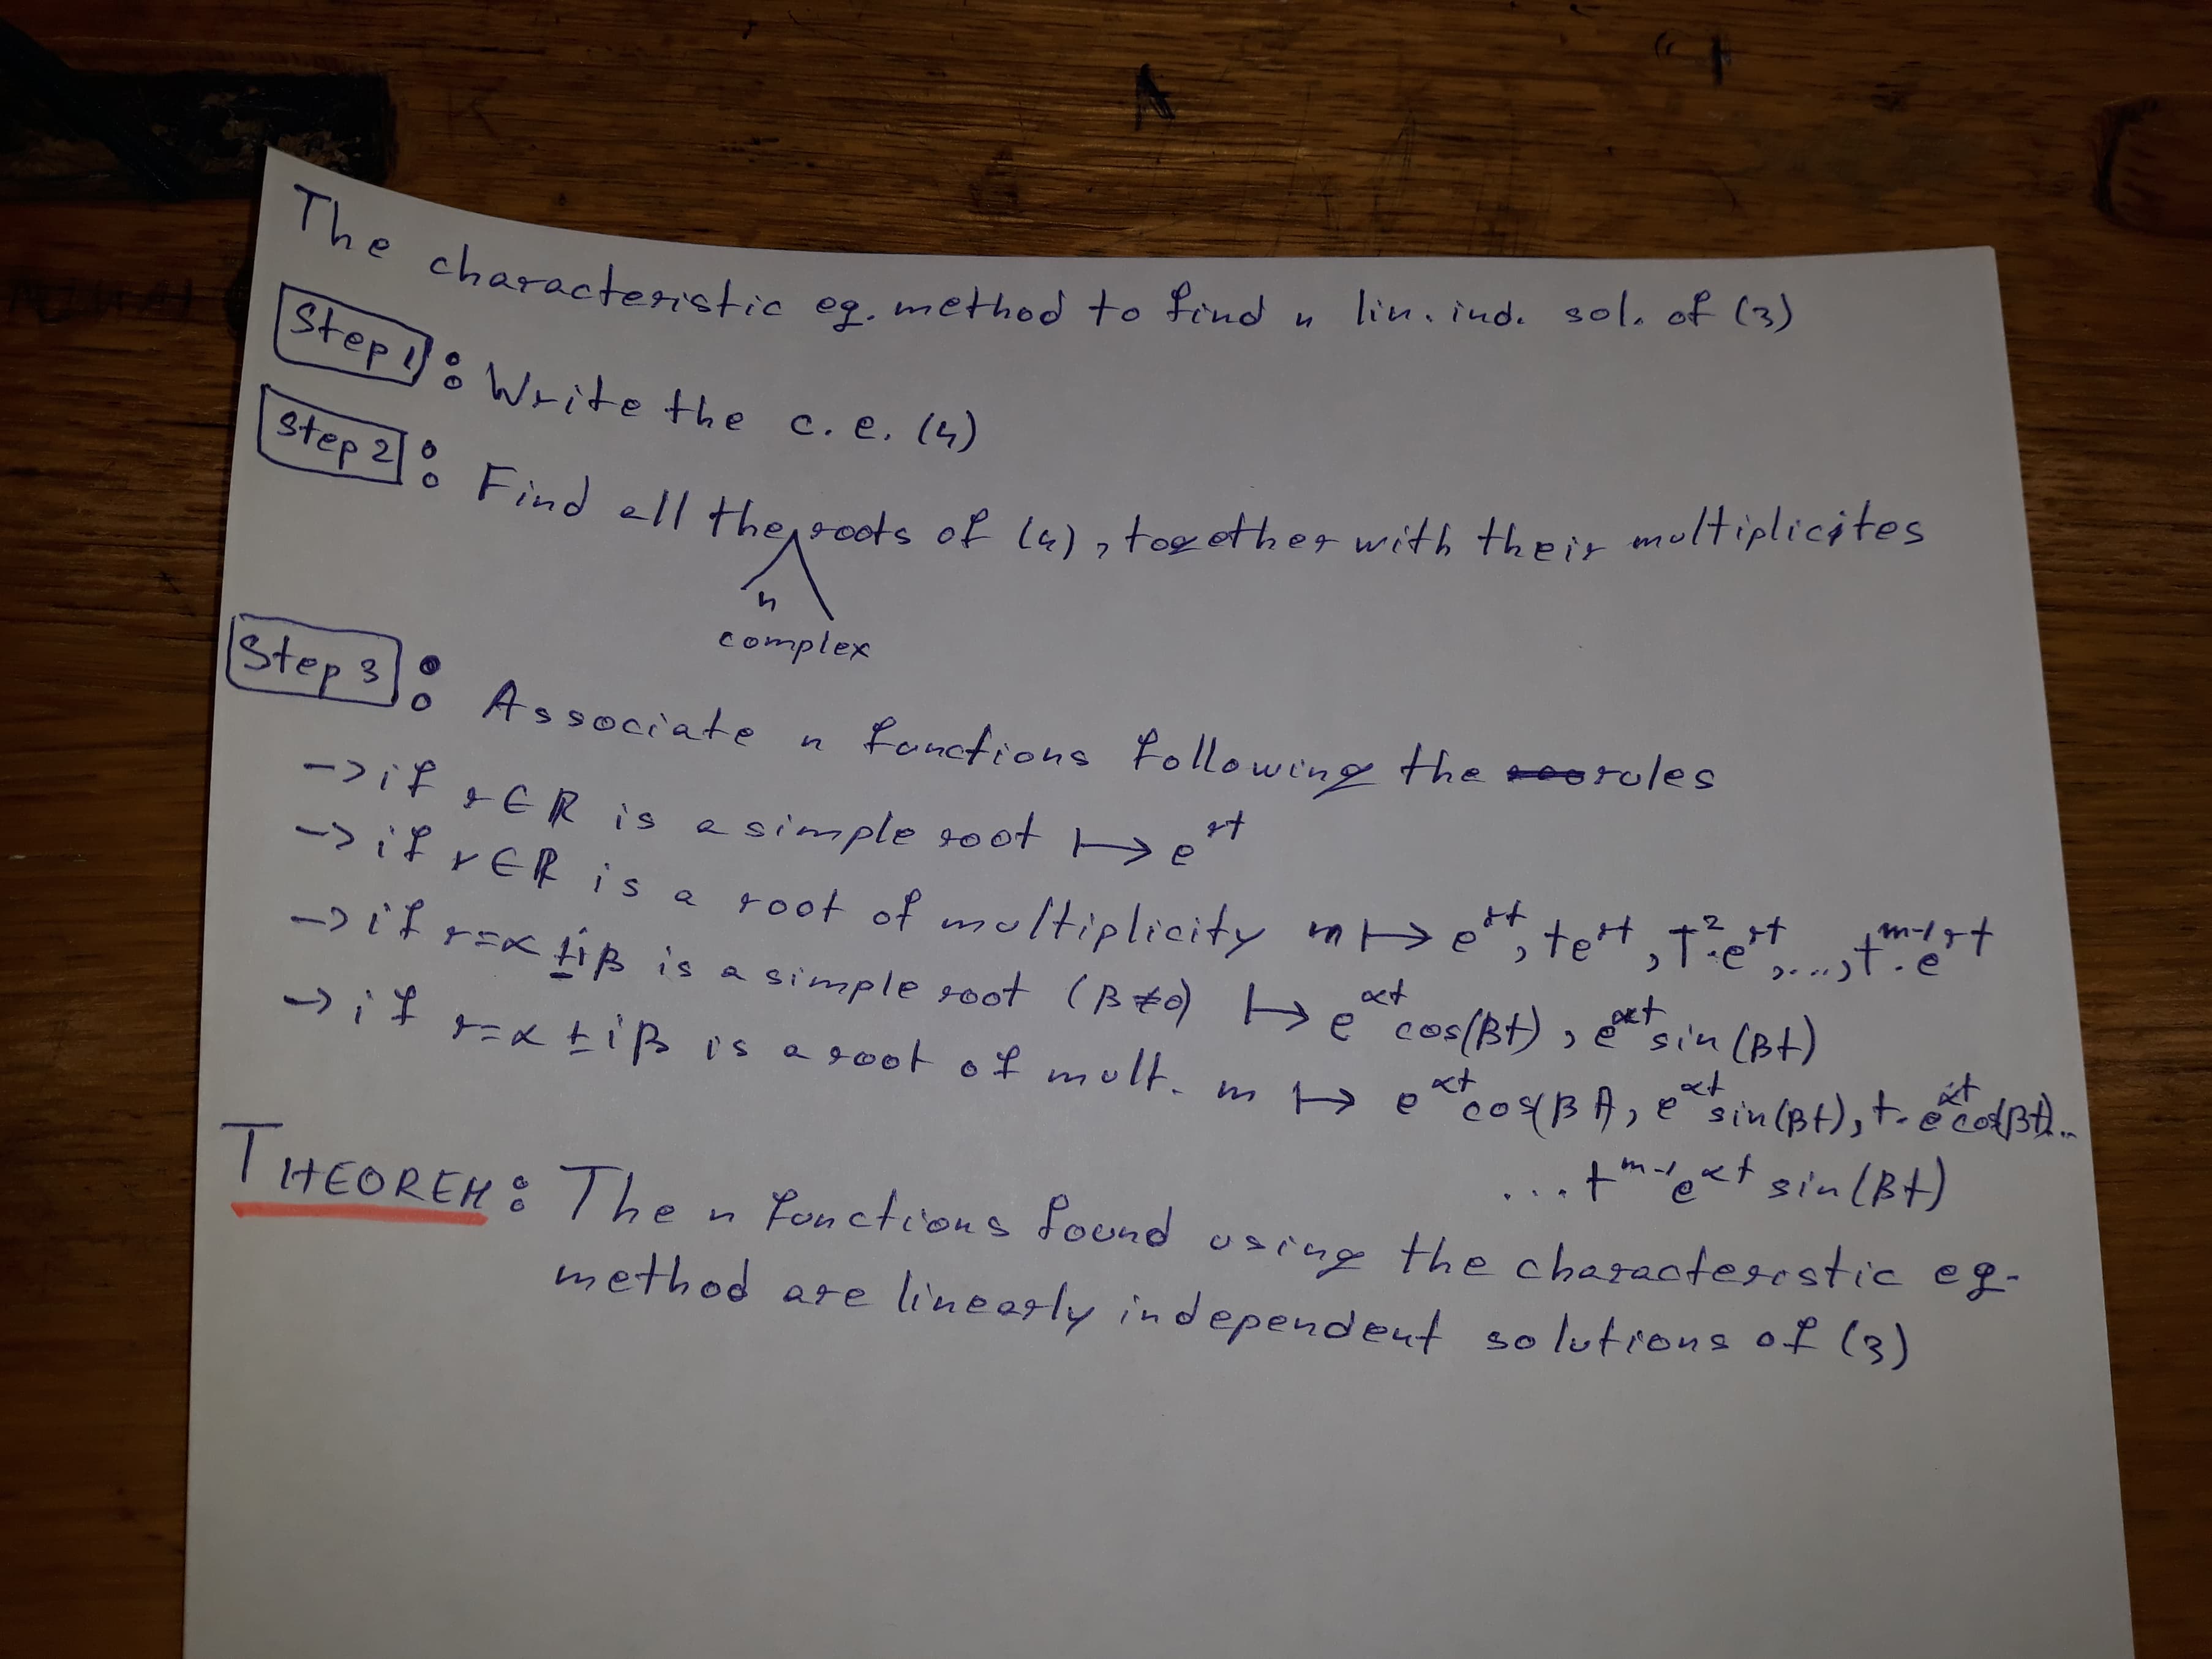 The characteristic eq. method to find n lin. ind. sol. of (3)
Step 1: Write the c.e. (4)
Step 2: Find all the roots of (4), together with their multiplicites
n
complex
Step 3: Associate n functions following the rules
→ if r∈ℝ is a simple root ↦ e^{rt}
→ if r∈ℝ is a root of multiplicity m ↦ e^{rt}, te^{rt}, t^2·e^{rt},..., t^{m-1}·e^{rt}
→ if r=α±iβ is a simple root (β≠0) ↦ e^{αt}cos(βt), e^{αt}sin(βt)
→ if r=α±iβ is a root of mult. m ↦ e^{αt}cos(βt), e^{αt}sin(βt), t·e^{αt}cos(βt)...
...t^{m-1}e^{αt} sin(βt)
THEOREM: The n functions found using the characteristic eq.
method are linearly independent solutions of (3)